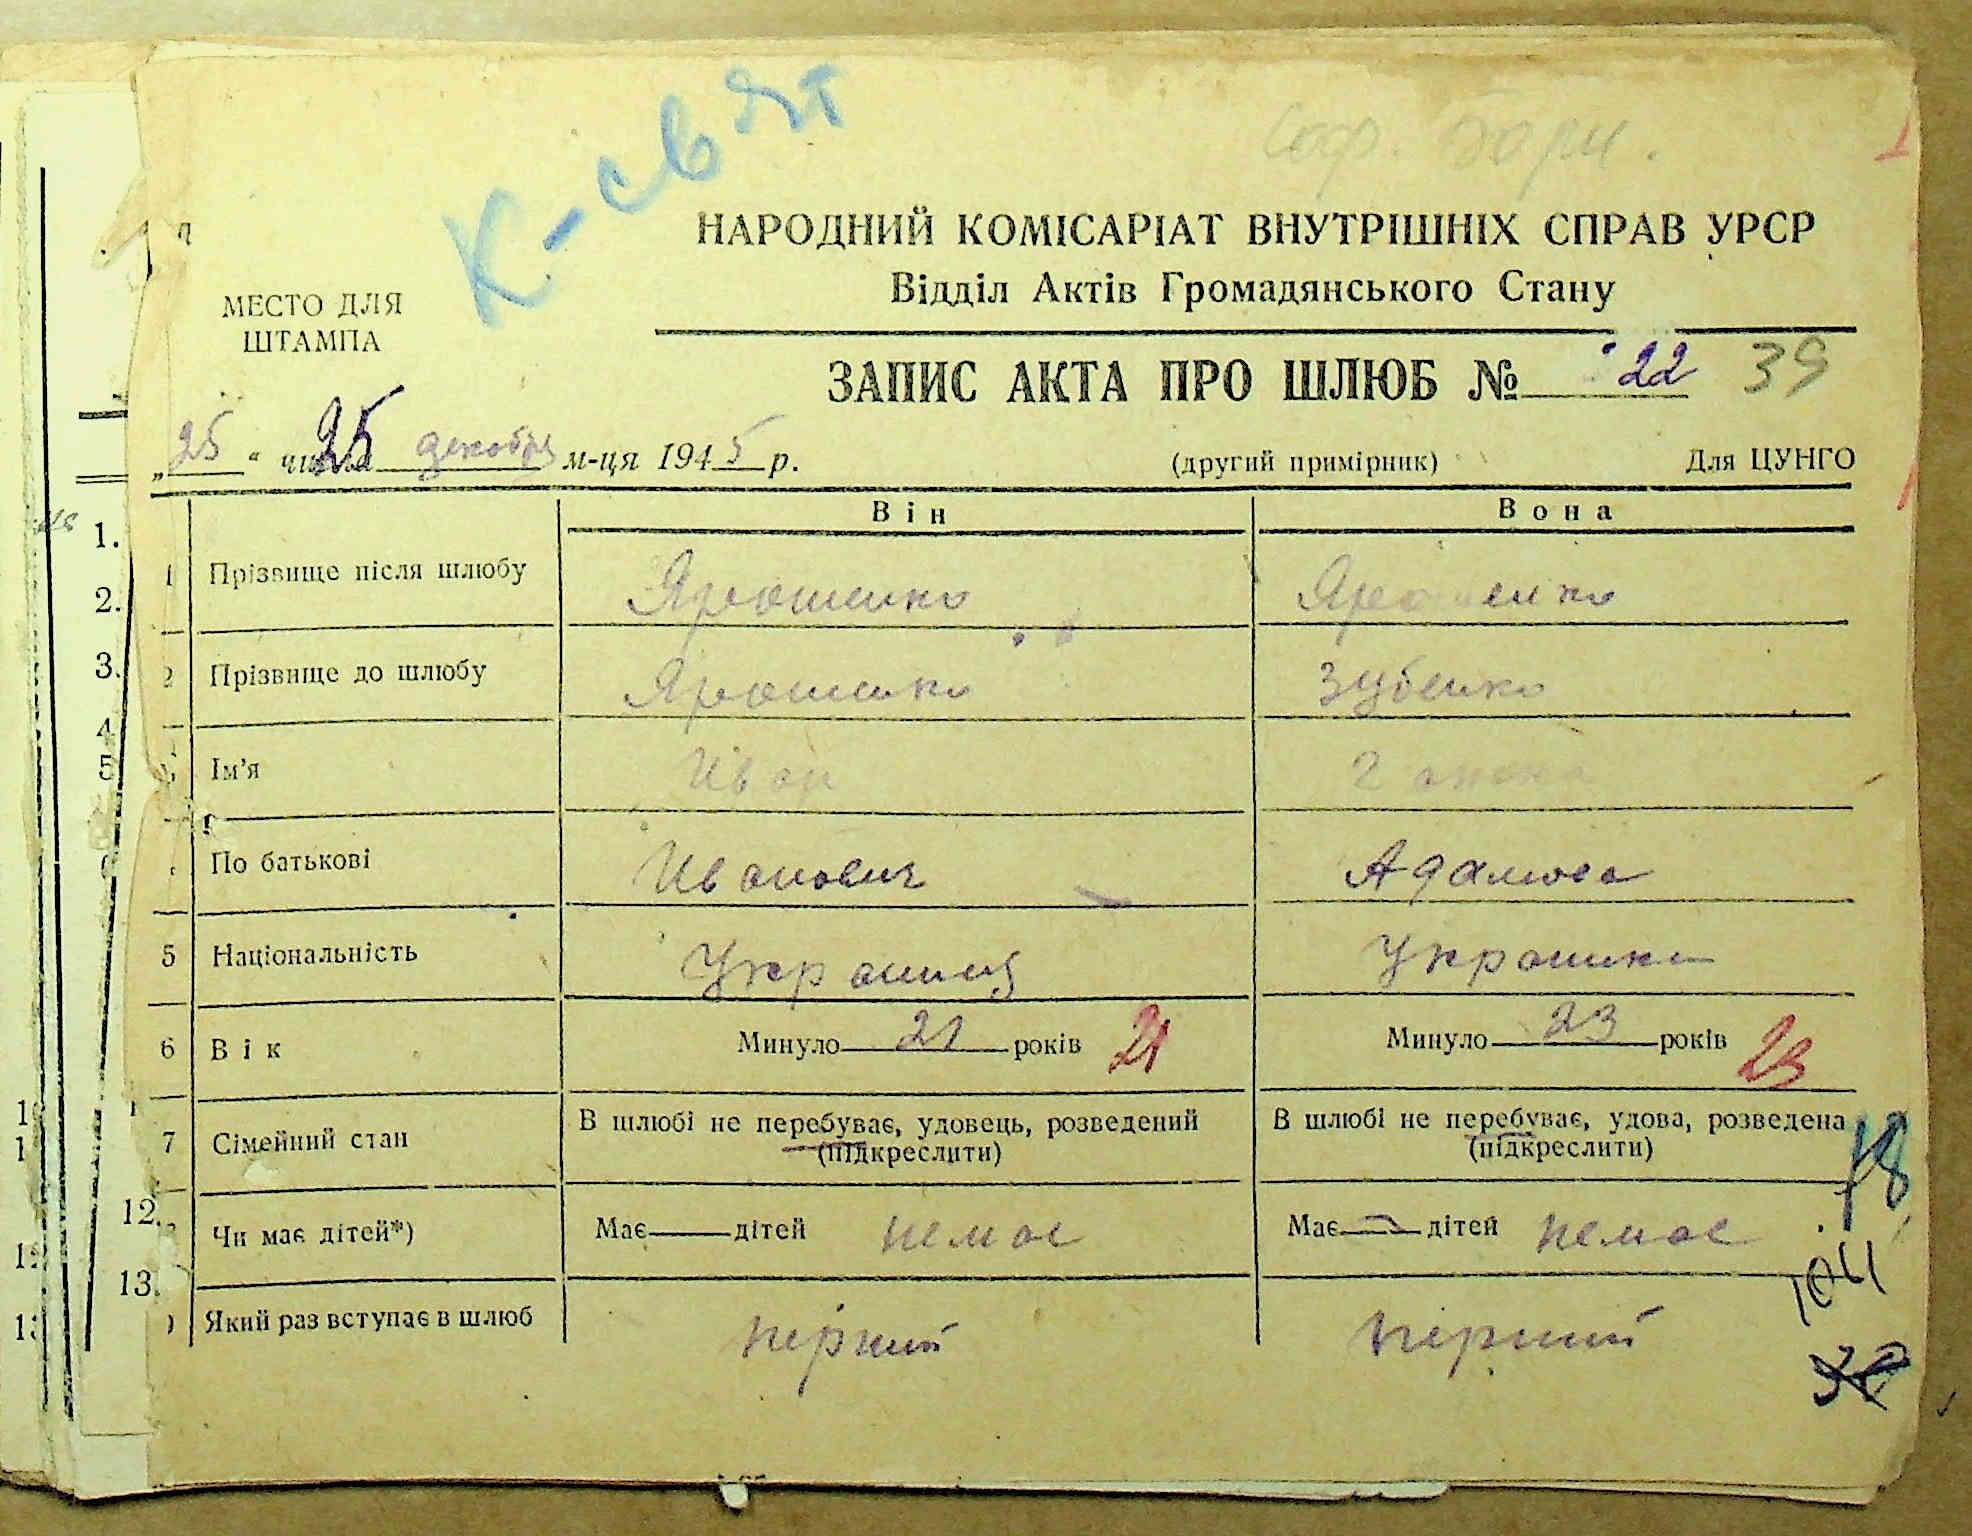 К-свят
Соф. Борщ.
НАРОДНИЙ КОМІСАРІАТ ВНУТРІШНІХ СПРАВ УРСР
Відділ Актів Громадянського Стану
МЕСТО ДЛЯ
ШТАМПА
ЗАПИС АКТА ПРО ШЛЮБ № 22 39
„25“ числа 25 декабря м-ця 1945 р. (другий примірник) Для ЦУНГО
Він Вона
1 Прізвище після шлюбу Ярошенко Ярошенко
2 Прізвище до шлюбу Ярошенко Зубенко
Ім'я Иван
По батькові Иванович Адамова
5 Національність Украинец Украинка
6 Вік Минуло 21 років 21 Минуло 23 років 23
7 Сімейний стан В шлюбі не перебуває, удовець, розведений В шлюбі не перебуває, удова, розведена
(підкреслити) (підкреслити)
18
Чи має дітей*) Має дітей немає Має дітей немає
1041
Який раз вступає в шлюб перший перший
1.
2.
3.
4
5
12.
13.